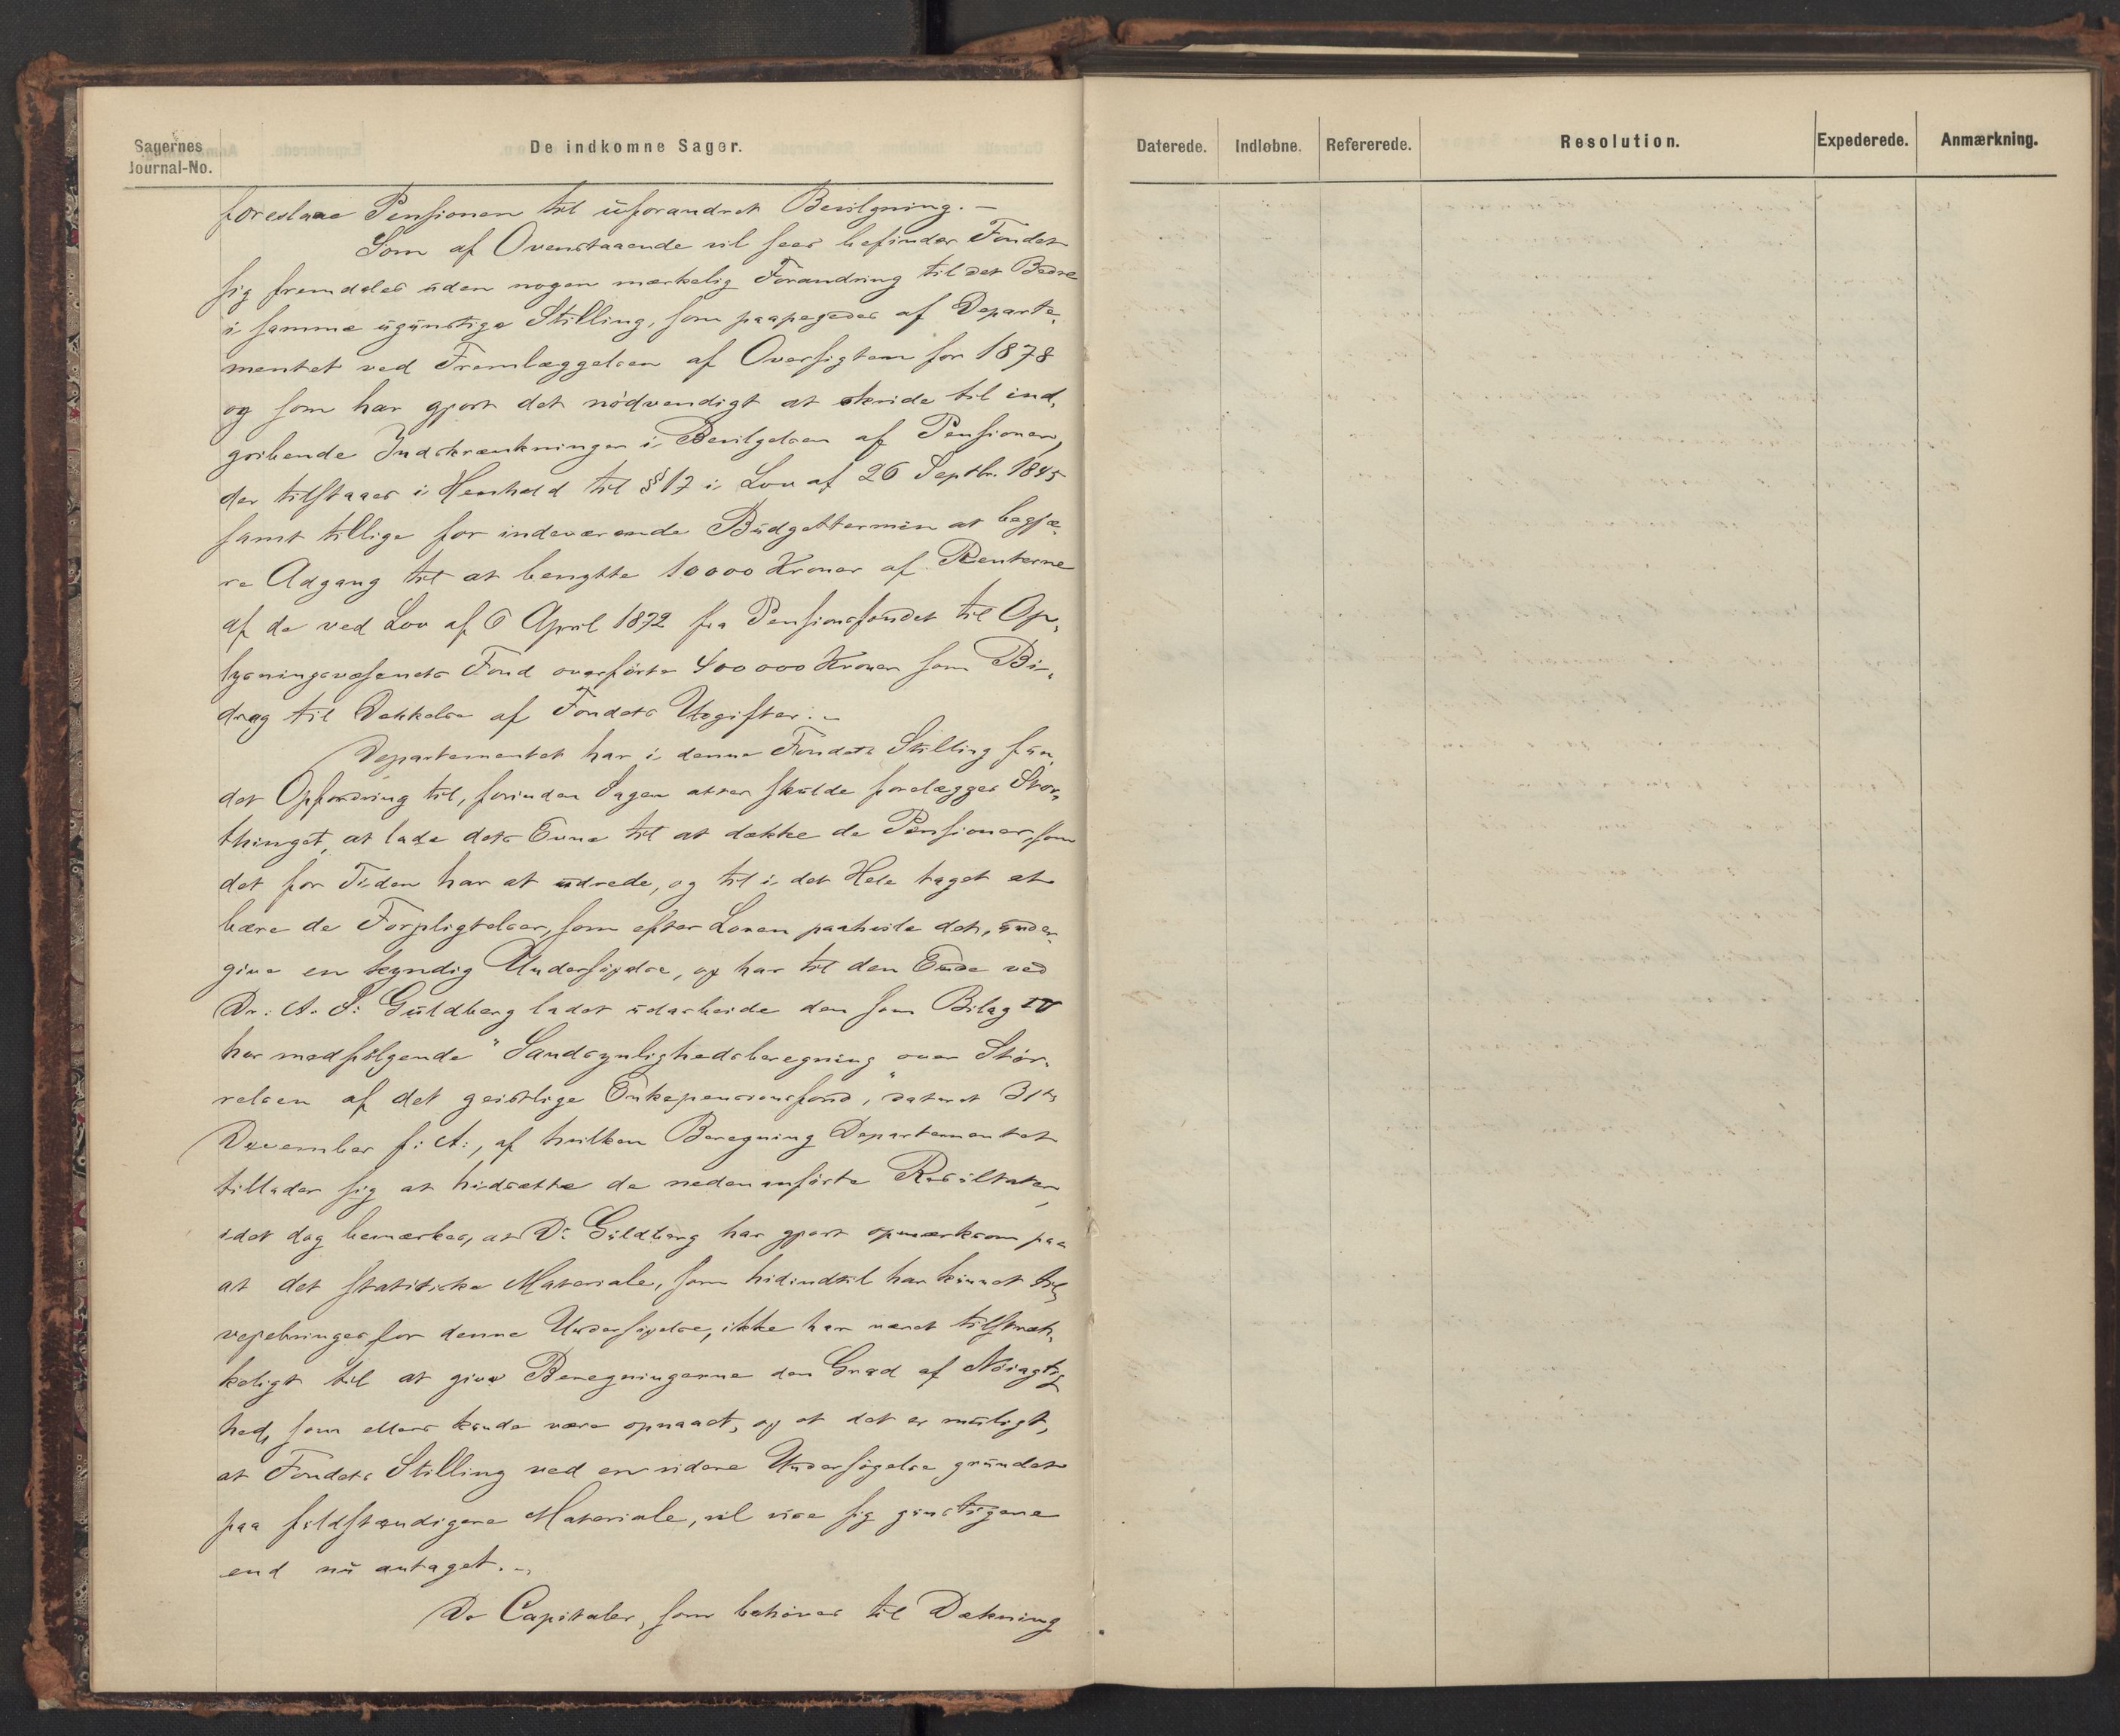 Sagernes
Journal-No.
De indkomne Sager.
Daterede.
Indløbne.
Refererede.
Resolution.
Expederede.
Anmærkning.
foreslaae Pensionen til uforandret Bevilgning. –
Som af Ovenstaaende vil sees befinder Fondet
sig fremdeles uden nogen mærkelig Forandring til det Bedre
i samme ugunstige Stilling, som paapegedes af Departe,
mentet ved Fremlæggelsen af Oversigten for 1878
og som har gjort det nødvendigt at skride til ind,
gribende Indskrænkninger i Bevilgelsen af Pensioner,
der tilstaaes i Henhold til § 17 i Lov af 26 Septbr. 1845
samt tillige for indeværende Budgettermin at begjæ,
re Adgang til at benytte 10000 Kroner af Renterne
af de ved Lov af 6 April 1872 fra Pensionsfondet til Op,
lysningsvæsenets Fond overførte 400 000 Kroner som Bi,
drag til Dækkelse af Fondets Udgifter. –
Departementet har i denne Fondets Stilling fun,
det Opfordring til, forinden Sagen atter skulde forelægges Stor,
thinget, at lade dets Evne til at dække de Pensioner, som
det for Tiden har at udrede, og til i det Hele taget at
bære de Forpligtelser, som efter Loven paahvile det, under,
give en kyndig Undersøgelse, og har til den Ende ved
Dr. A. S. Guldberg ladet udarbeide den som Bilag IV
her medfølgende "Sandsynlighedsberegning over Stør,
relsen af det geistlige Enkepensionsfond", dateret 31te
December f: A:, af hvilken Beregning Departementet
tillader sig at hidsætte de nedenanførte Resultater,
idet dog bemærkes, at Dr Guldberg har gjort opmærksom paa
at det statistiske Materiale, som hidindtil har kunnet til,
vejebringes for denne Undersøgelse, ikke har været tilstræk,
keligt til at give Beregningerne den Grad af Nøiagtig,
hed, som ellers kunde være opnaaet, og at det er muligt,
at Fondets Stilling ved en videre Undersøgelse grundet
paa fuldstændigere Materiale, vil vise sig gunstigere
end nu antaget. –
De Capitaler, som behøves til Dækning